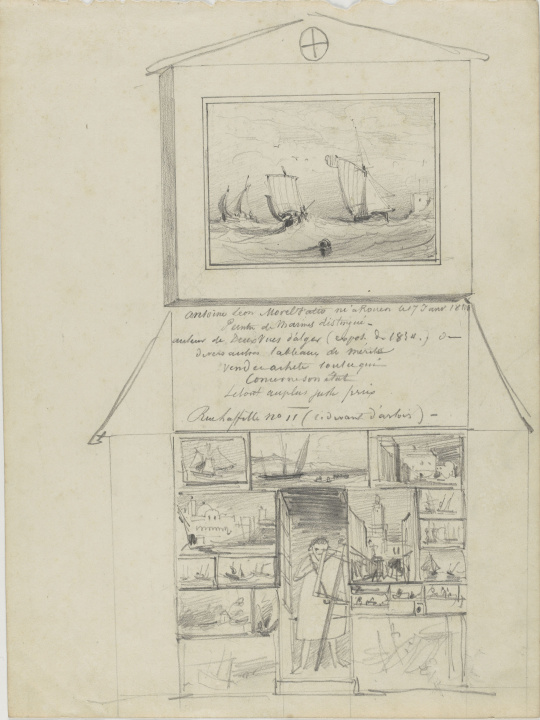 Antoine Léon Morel Fatio né à Rouen le 17 Janv 1810
Peintre de Marines distingué -
auteur de Deux Vues d'alger (expos. de 183 ) &
divers autres tableaux de mérite
vend et achete tout ce qui
Concerne son état
Le tout au plus juste prix
Rue Laffitte no 11 (ci devant d'artois) -